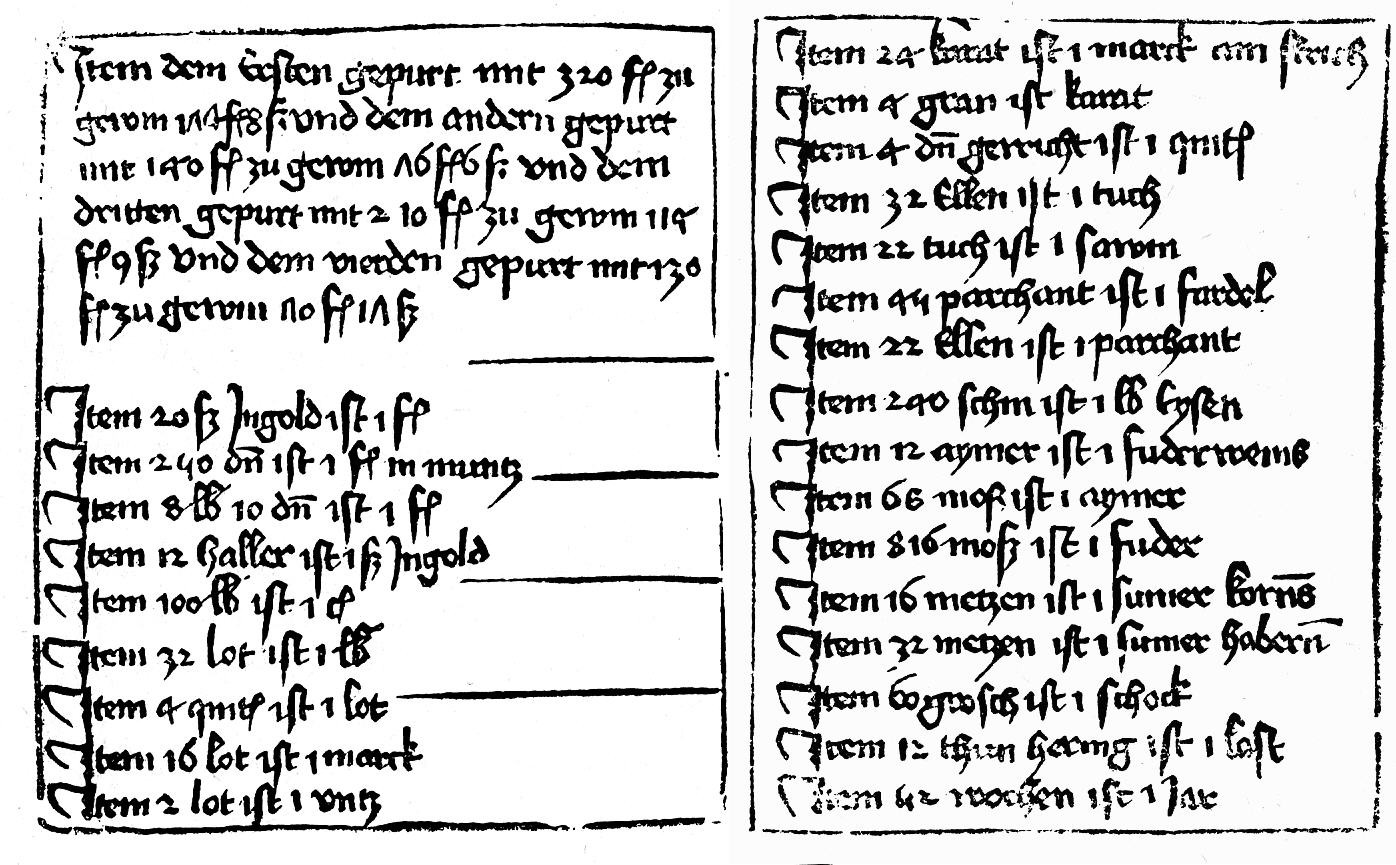 Item dem Ersten gepurt mit 320 fl zu
gewin 174 fl 8 ß vnd dem andern gepurt
mit 140 fl zu gewin 76 fl 6 ß vnd dem
dritten gepurt mit 210 fl zu gewin 114
fl 9 ß vnd dem vierden gepurt mit 130
fl zu gewin 70 fl 17 ß
Item 20 ß Jngold ist 1 fl
Item 250 dñ ist 1 fl in muntz
Item 8 lb 10 dñ ist 1 fl
Item 12 haller ist 1 ß Jngold
Item 100 lb ist 1 ct
Item 32 lot ist 1 lb
Item 4 quitl ist 1 lot
Item 16 lot ist 1 marck
Item 2 lot ist 1 vntz
Item 24 karat ist 1 marck am strich
Item 4 gran ist karat
Item 4 dñ gewicht ist 1 quitl
Item 32 Ellen ist 1 tuch
Item 22 tuch ist 1 sawm
Item 45 parchant ist 1 fardel
Item 22 Ellen ist 1 parchant
Item 240 schin ist 1 lb Eysen
Item 12 aymer ist 1 fuder weins
Item 68 moß ist 1 aymer
Item 816 moß ist 1 fuder
Item 16 metzen ist 1 sumer korñs
Item 32 metzen ist 1 sumer haberñ
Item 60 grosch ist 1 schock
Item 12 thun hering ist 1 last
Item 52 wochen ist 1 Jar